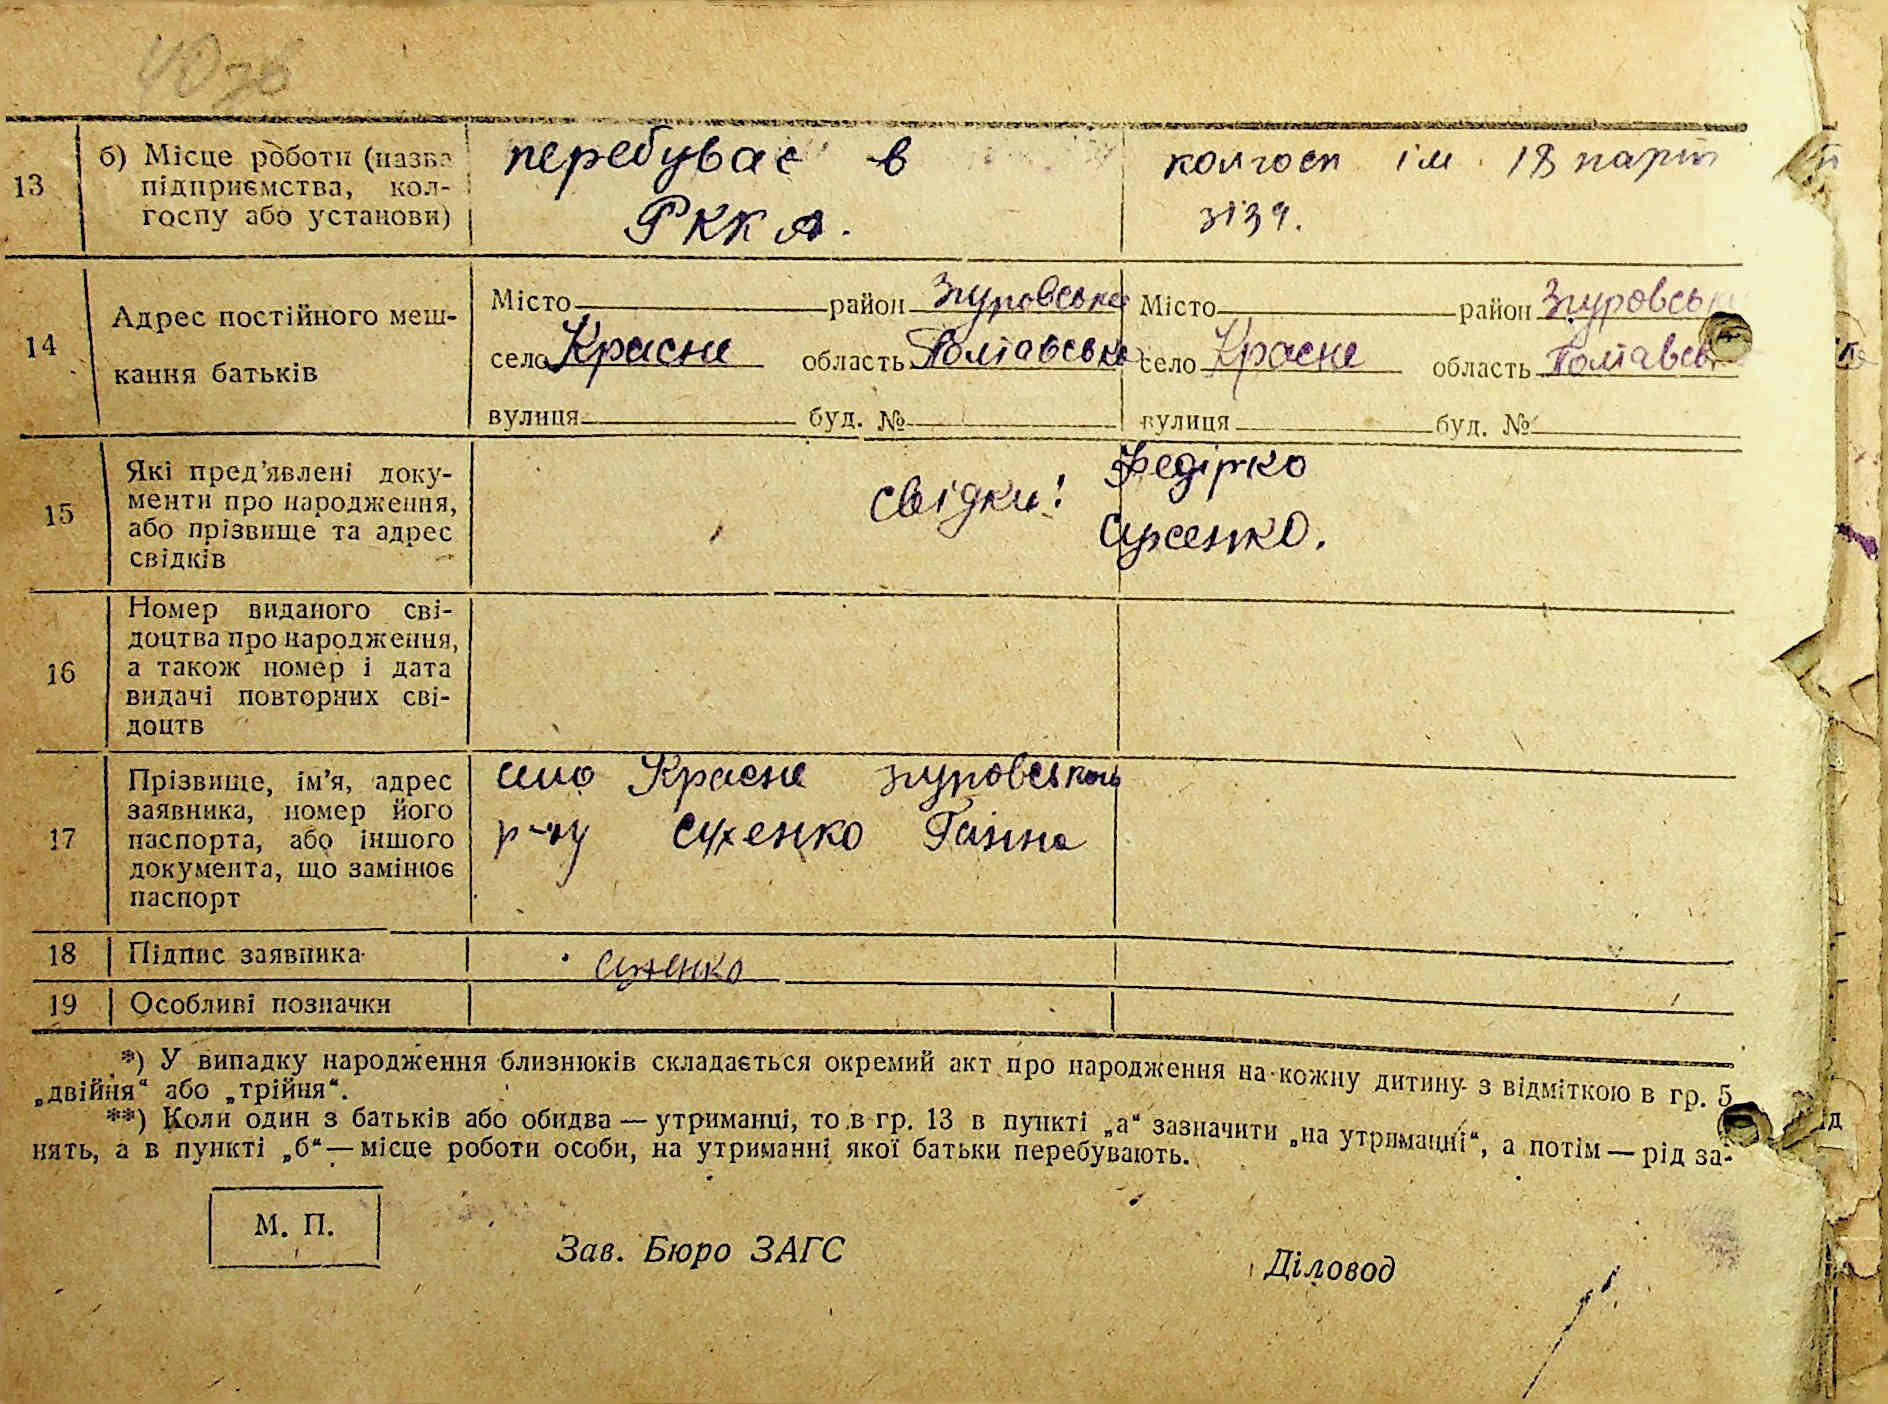 13
б) Місце роботи (назва
підприємства, кол-
госпу або установи)
перебуває в
РККА.
колгосп ім 18 парт
зїзд.
14
Адрес постійного меш-
кання батьків
Місто район Згуровське
село Красне область Полтавська
вулиця буд. №
Місто район Згуровськ
село Красне область Полтавсь
вулиця буд. №
15
Які пред’явлені доку-
менти про народження,
або прізвище та адрес
свідків
свідки:
Федірко
16
Номер виданого сві-
доцтва про народження,
а також номер і дата
видачі повторних сві-
доцтв
17
Прізвище, ім’я, адрес
заявника, номер його
паспорта, або іншого
документа, що замінює
паспорт
село Красне згуровського
р-ну Сухенко Ганна
18
Підпис заявника
Сухенко
19
Особливі позначки
*) У випадку народження близнюків складається окремий акт про народження на кожну дитину з відміткою в гр. 5
„двійня“ або „трійня“.
**) Коли один з батьків або обидва — утриманці, то в гр. 13 в пункті „а“ зазначити „на утриманні“, а потім — рід за-
нять, а в пункті „б“ — місце роботи особи, на утриманні якої батьки перебувають.
М. П.
Зав. Бюро ЗАГС
Діловод